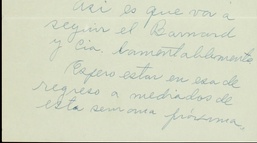 Así es que voi a
seguir el Barnard
y Cia lamentablemente
Espero estar en esa de
regreso a mediados de
esta semana próxima.